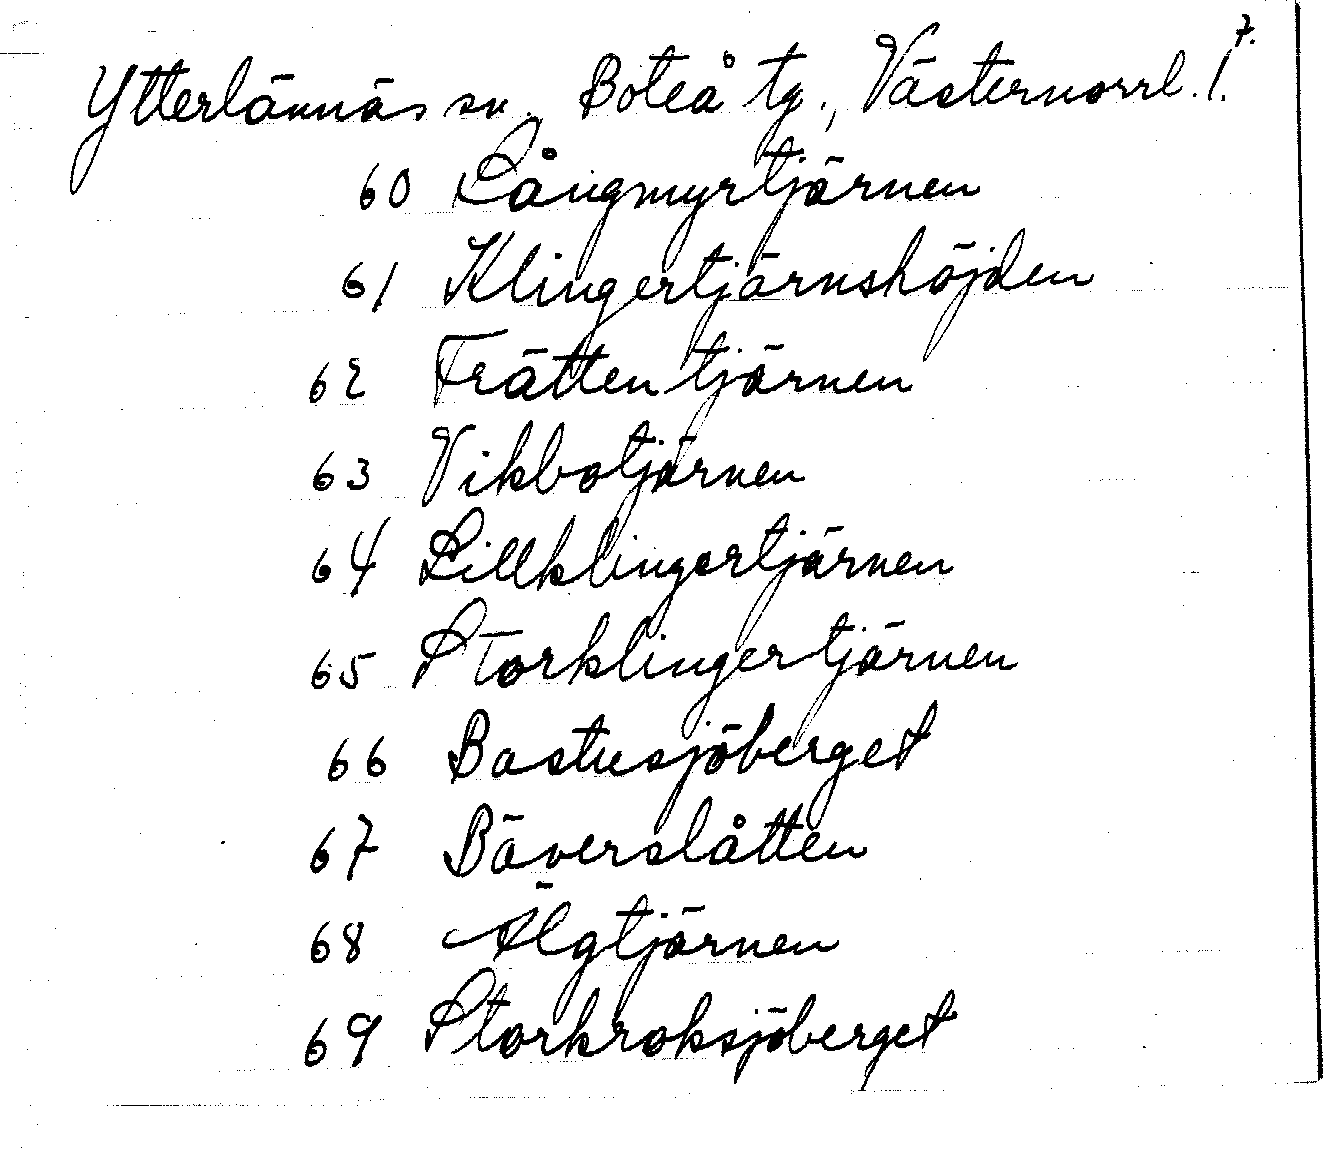 7.
Ytterlännäs sn. Boteå tg., Västernorrl. l.
60 Långmyrtjärnen
61 Klingertjärnshöjden
62 Frättentjärnen
63 Vikbotjärnen
64 Lillklingertjärnen
65 Storklingertjärnen
66 Bastusjöberget
67 Bäverslåtten
68 Älgtjärnen
69 Storkroksjöberget